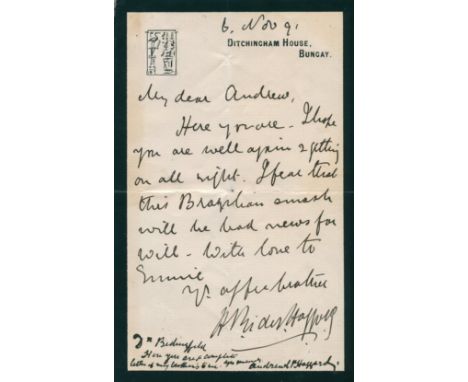 6. Nov 91
DITCHINGHAM HOUSE,
BUNGAY.
My dear Andrew,
Here you are - I hope
you are well again & getting
on all right. I fear that
this Brazilian smash
will be bad news for
Will - With love to
Emmie
Yr. affec brother
H Rider Haggard
Dr Bedingfeld
Here you are a complete
letter of my brother's
Andrew C P Haggard